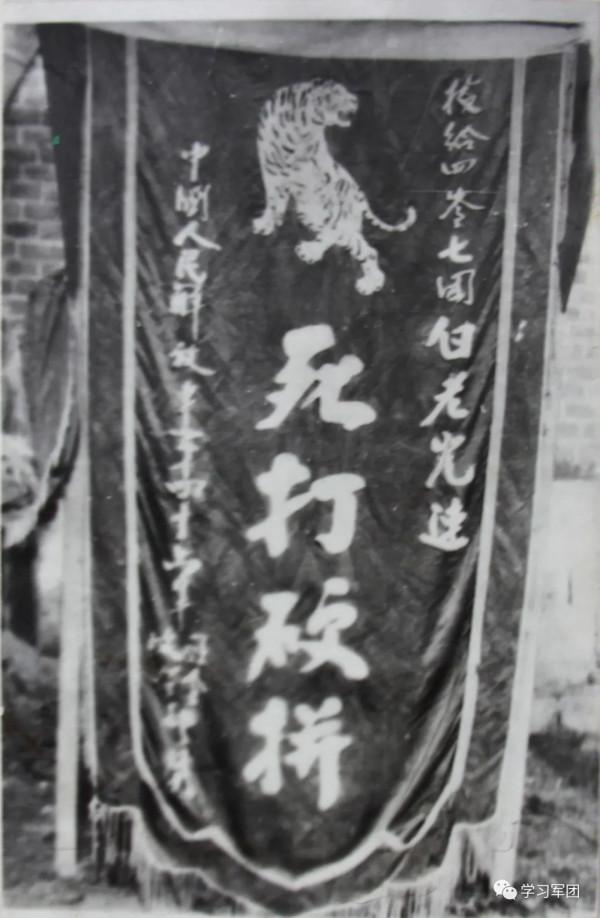 授给四零七团白老虎連
死打硬拼
中國人民解放军第四十六军
学习军团